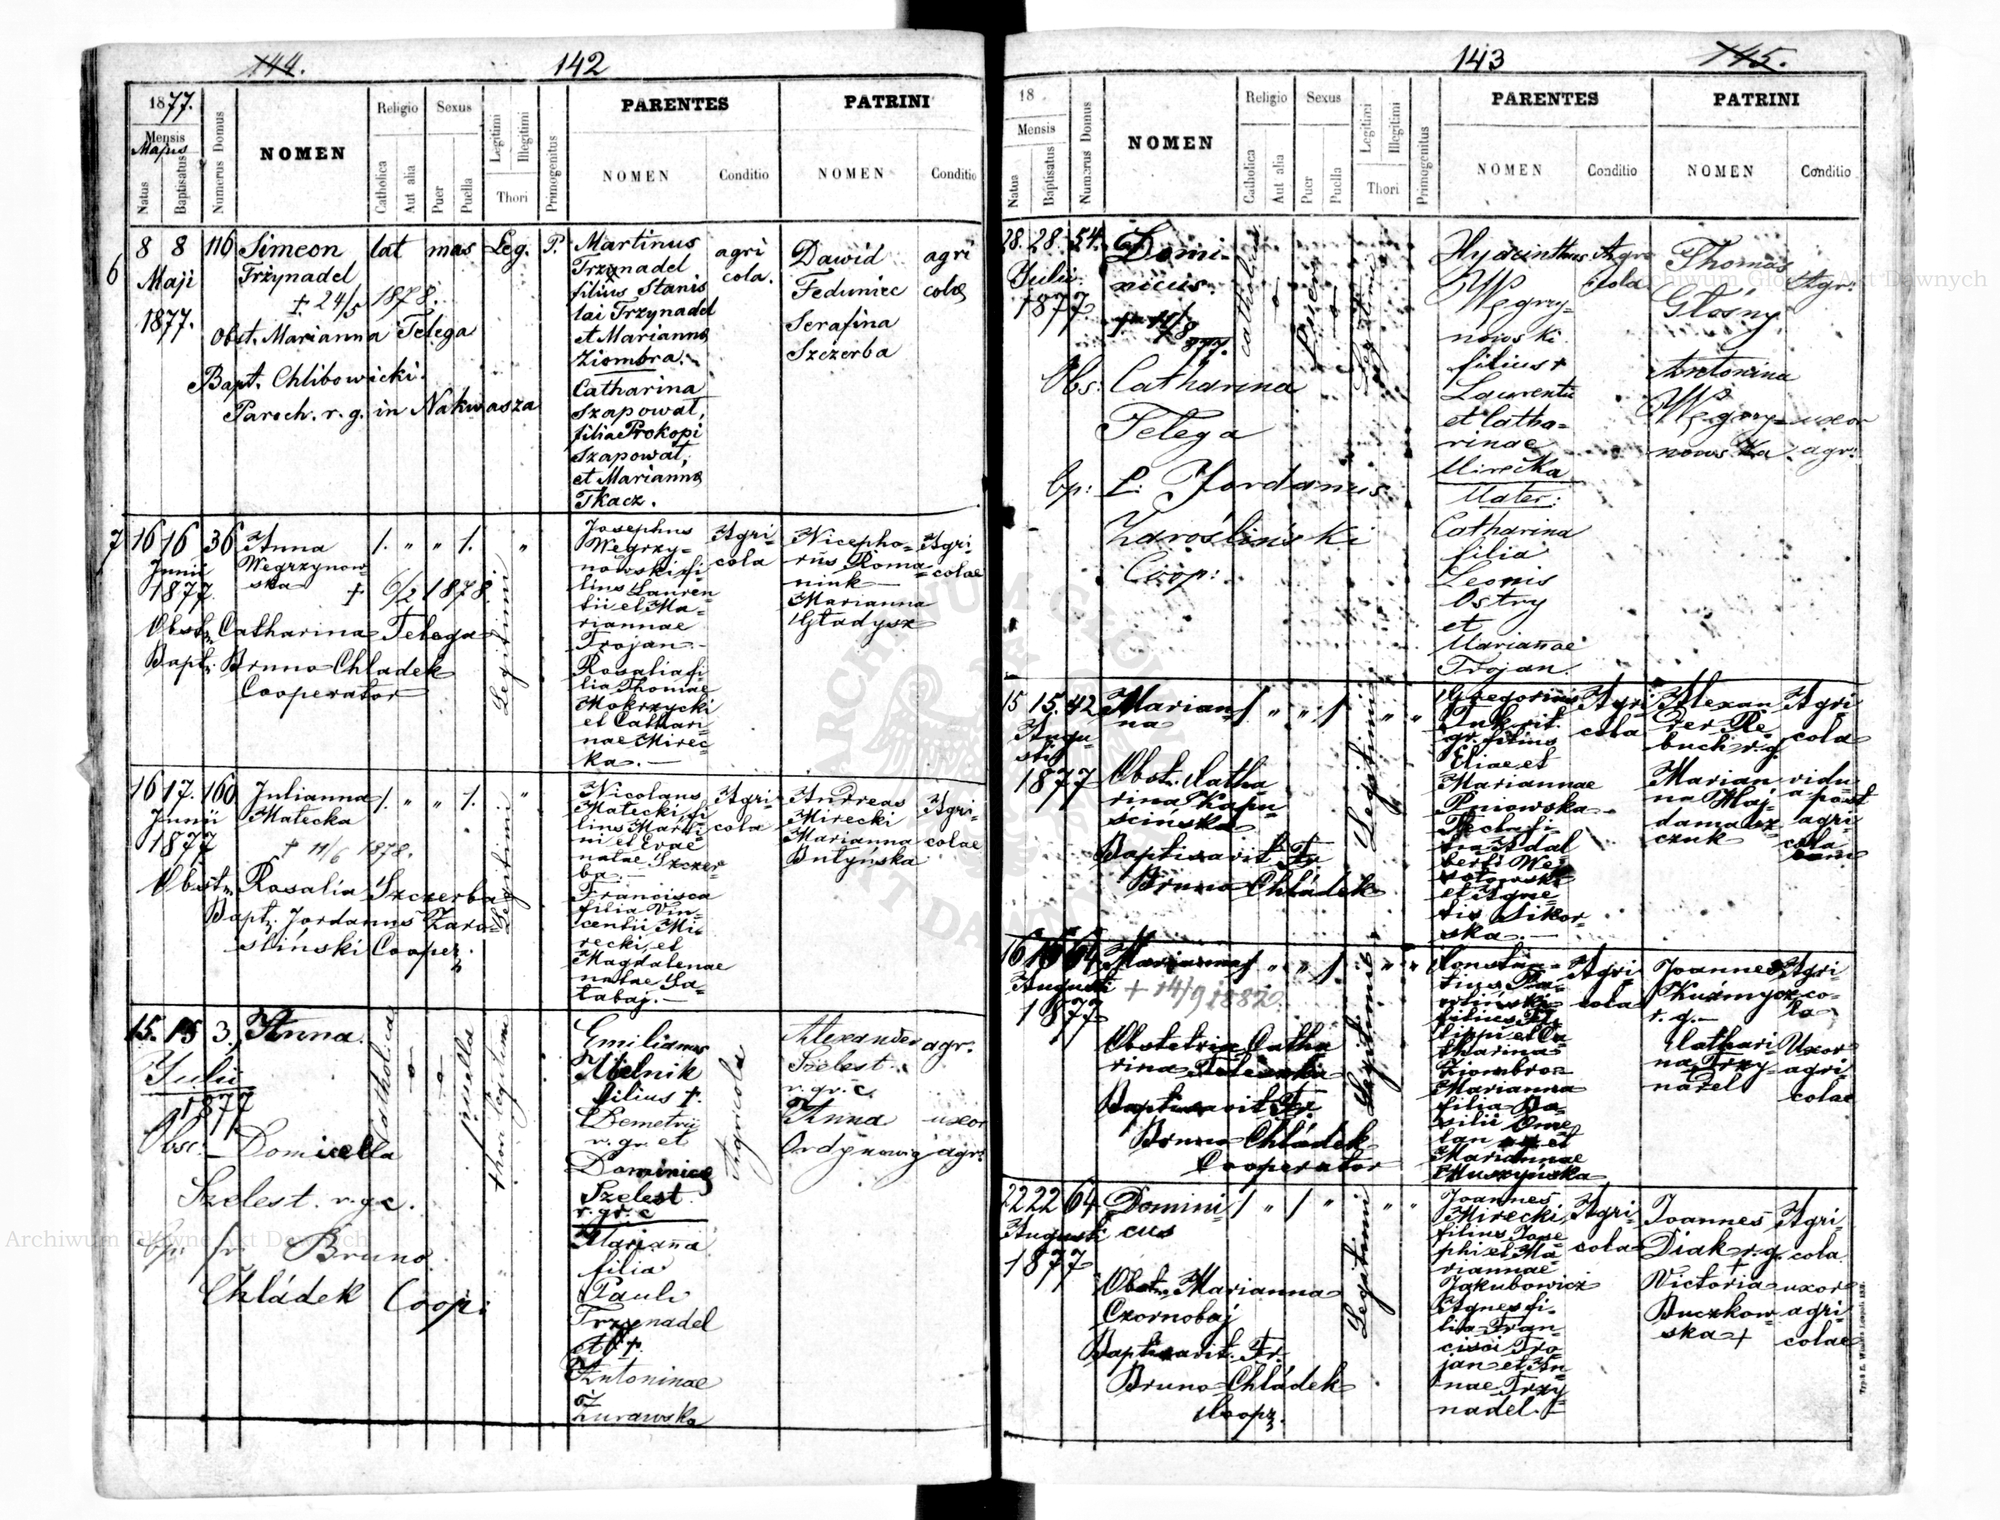 144.
142
1877.
Mensis
Majus
Natus
Baptisatus
Numerus Domus
NOMEN
Religio
Catholica
Aut alia
Sexus
Puer
Puella
Legitimi
Illegitimi
Thori
Primogenitus
PARENTES
NOMEN
Conditio
PATRINI
NOMEN
Conditio
6
8 8 116
Maji
1877.
Simeon
Trzynadel
+ 24/5 1878.
lat mas Leg. P.
Obst. Marianna Telega
Bapt. Chlibowicki.
Paroch. r. g. in Nakwasza
Martinus
Trzynadel
filius Stanis
lai Trzynadel
et Marianna
Ziombra.
Catharina
Szapowat,
filia Prokopi
Szapowat,
et Marianna
Tkacz.
agri
cola.
Dawid
Feduniec
Serafina
Szczerba
agri
colae
7
16 16 36
Junii
1877
Anna
Wegrzynow-
ska + 6/2 1878.
1. " " 1. "
Legitimi
Obst. Catharina Telega
Bapt. Bruno Chladek
Cooperator
Josephus
Wegrzy-
nowski fi-
lius Lauren-
tii et Ma-
riannae
Trojan.-
Rosalia fi-
lia Thomae
Mokrzycki
et Cathari-
nae Mirec-
ka.-
Agri-
cola
Nicepho-
rus Roma-
niuk
Marianna
Gładysz
Agri-
colae
16 17. 160
Junii
1877
Julianna
Małecka
+ 11/6 1878.
1. " " 1. "
Legitimi
Obst. Rosalia Szczerba
Bapt. Jordanus Zaro-
sliński Cooper.
Nicolaus
Małecki, fi-
lius Marti-
ni et Evae
natae Szczer-
ba.-
Francisca
filia Vin-
centii Mi-
recki, et
Magdalenae
natae Sa-
tabaj.-
Agri-
cola
Andreas
Mirecki
Marianna
Butynska
Agri-
colae
15. 15 3.
Julii
1877
Anna
Catholica
puella
thori legitimi
Obsc: Domicella
Szelest. r. g. c.
bp: fr. Bruno
Chládek Coop:
Emilianus
Melnik
filius +
Demetrii
r. gr. et
Dominicae
Szelest
r. gr. c
Marianna
filia
Pauli
Trzynadel
et +.
Antoninae
Żurawska
Agricola
Alexander
Szelest
r. gr. c.
Anna
Ordynowicz
agr.
uxor
agr.
143
145.
18
Mensis
Natus
Baptisatus
Numerus Domus
NOMEN
Religio
Catholica
Aut alia
Sexus
Puer
Puella
Legitimi
Illegitimi
Thori
Primogenitus
PARENTES
NOMEN
Conditio
PATRINI
NOMEN
Conditio
28. 28. 54.
Julii
1877
Domi-
nicus.
+ 14/8
877.
catholica
Legitimi
Obs: Catharina
Telega
bp: P. Jordanus
Zarośliński
Coop:
Hyacinthus
Węgrzy-
nowski
filius +
Laurentii
et Catha-
rinae
Mirecka
Mater:
Catharina
filia
Leonis
Ostry
et
Mariannae
Trojan.
Agri
cola
Thomas
Głośny
Antonina
Węgrzy-
nowska
Agr:
uxor
agr:
15 15. 42
Augu-
sti
1877
Marian-
na
1 " " 1 " "
Legitimi
Obst. Catha
rina Kapu
scinska
Baptisavit Fr
Bruno Chládek
Gregorius
gr. filius
Eliae et
Mariannae
Pniowska
Tecla fi-
lia Adal
berti We
et Agne-
tis Sikor
ska.-
Agri
cola
Alexan
der Re
buch r. g.
Marian
na Haj-
damaszczuk
Agri
cola
vidu-
a post
agri-
cola
16 16 64
Augusti
1877
Marianna
+ 14/9 1882.
1 " " 1. " "
Legitimi
Obstetrix Catha
rina
Baptisavit Fr
Bruno Chládek
Cooperator
Constan-
tius
filius Fi
lippi et Ca
tharina
Ziombron
Marianna
filia Ba-
silii Ome
lan et
Mariannae
Muszyńska
Agri
cola
Joannes
Kuźmycz
r. g.-
Cathari-
na Trzy-
nadel
Agri-
co-
la
Uxor
agri-
colae
22 22 64
Augusti
1877
Domini-
cus
1 " 1 "
Legitimi
Obst. Marianna
Czornobaj
Baptisavit. Fr.
Bruno Chládek
Coop.
Joannes
Mirecki,
filius Jose
phi et Ma
riannae
Jakubowicz
Agnes fi-
lia Fran-
cisci Tro-
jan et An-
nae Trzy
nadel.-
Agri-
cola
Joannes
Diak r. g.
+
Victoria
Buczkow-
ska +
Agri-
cola
uxor
agri-
colae
Archiwum Główne Akt Dawnych
Archiwum Główne Akt Dawnych
ARCHIWUM GŁÓWNE AKT DAWNYCH